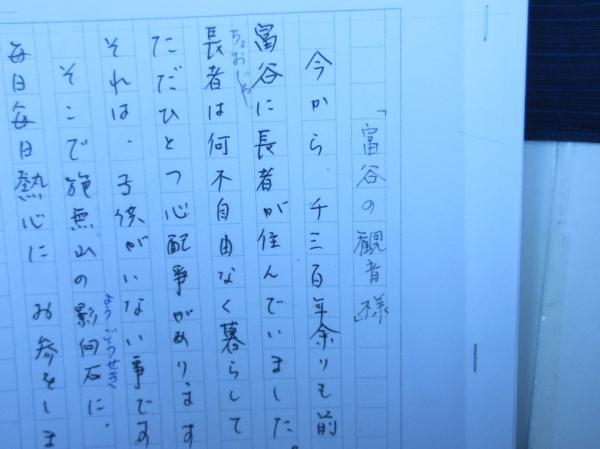 「富谷の観音様」
今から、千三百年余りも前
富谷に長者が住んでいました。
ちょおじゃ
長者は何不自由なく暮らして
ただひとつ心配事があります
それは、子供がいない事です
そこで施無山の影向石に、
ようごうせき
毎日毎日熱心に お参をしま